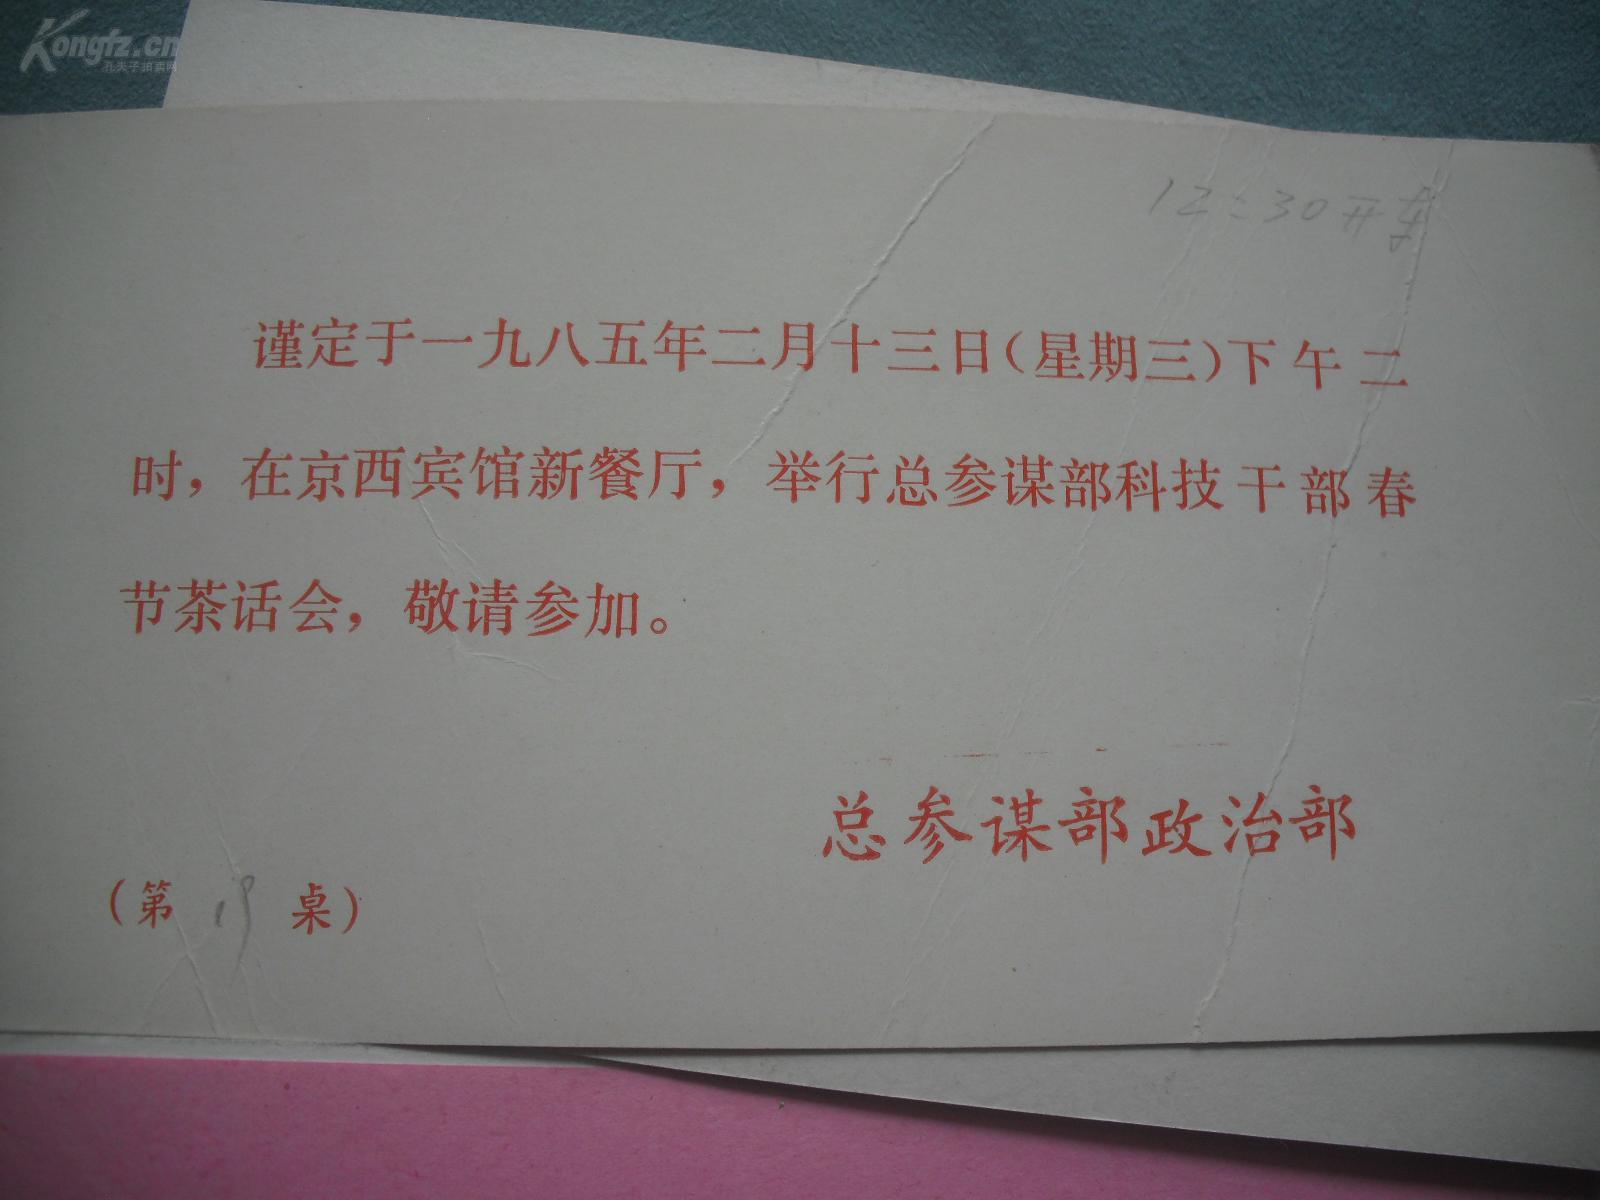 Kongfz.cn
孔夫子拍卖网
12:30开车
谨定于一九八五年二月十三日(星期三)下午二
时，在京西宾馆新餐厅，举行总参谋部科技干部春
节茶话会，敬请参加。
总参谋部政治部
(第 19 桌)